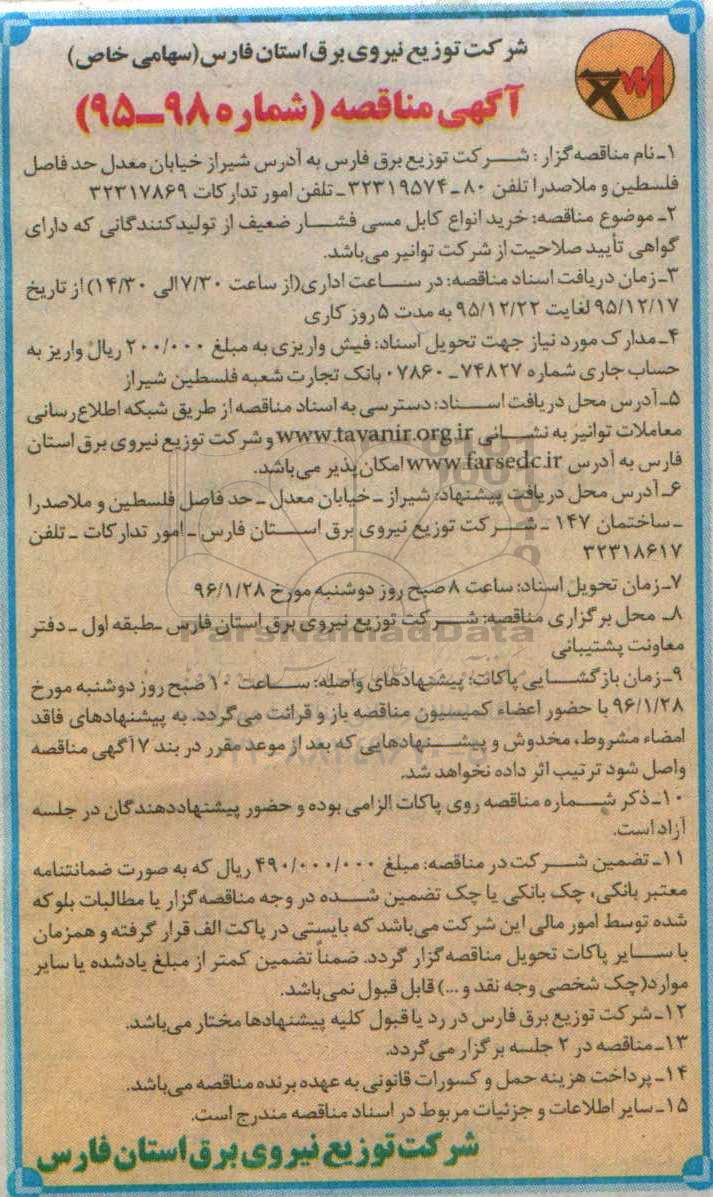 شرکت توزیع نیروی برق استان فارس (سهامی خاص)
آگهی مناقصه (شماره ۹۸-۹۵)
۱ـ نام مناقصه‌گزار: شرکت توزیع برق فارس به آدرس شیراز خیابان معدل حد فاصل
فلسطین و ملاصدرا تلفن ۸۰ ـ ۳۲۳۱۹۵۷۴ـ تلفن امور تدارکات ۳۲۳۱۷۸۶۹
۲ـ موضوع مناقصه: خرید انواع کابل مسی فشار ضعیف از تولیدکنندگانی که دارای
گواهی تأیید صلاحیت از شرکت توانیر می‌باشد.
۳ـ زمان دریافت اسناد مناقصه: در ساعت اداری(از ساعت ۷/۳۰ الی ۱۴/۳۰) از تاریخ
۹۵/۱۲/۱۷ لغایت ۹۵/۱۲/۲۲ به مدت ۵ روز کاری
۴ـ مدارک مورد نیاز جهت تحویل اسناد: فیش واریزی به مبلغ ۲۰۰/۰۰۰ ریال واریز به
حساب جاری شماره ۷۴۸۲۷ ـ ۰۷۸۶۰ بانک تجارت شعبه فلسطین شیراز
۵ـ آدرس محل دریافت اسناد: دسترسی به اسناد مناقصه از طریق شبکه اطلاع رسانی
معاملات توانیر به نشانی www.tavanir.org.ir و شرکت توزیع نیروی برق استان
فارس به آدرس www.farsedc.ir امکان‌پذیر می‌باشد.
۶ـ آدرس محل دریافت پیشنهاد: شیراز ـ خیابان معدل ـ حد فاصل فلسطین و ملاصدرا
ـ ساختمان ۱۴۷ ـ شرکت توزیع نیروی برق استان فارس ـ امور تدارکات ـ تلفن
۳۲۳۱۸۶۱۷
۷ـ زمان تحویل اسناد: ساعت ۸ صبح روز دوشنبه مورخ ۹۶/۱/۲۸
۸ـ محل برگزاری مناقصه: شرکت توزیع نیروی برق استان فارس ـ طبقه اول ـ دفتر
معاونت پشتیبانی
ParsNamadData
۹ـ زمان بازگشایی پاکات: پیشنهادهای واصله: ساعت ۱۰ صبح روز دوشنبه مورخ
۹۶/۱/۲۸ با حضور اعضاء کمیسیون مناقصه باز و قرائت می‌گردد. به پیشنهادهای فاقد
امضاء مشروط، مخدوش و پیشنهادهایی که بعد از موعد مقرر در بند ۷ آگهی مناقصه
واصل شود ترتیب اثر داده نخواهد شد.
۱۰ـ ذکر شماره مناقصه روی پاکات الزامی بوده و حضور پیشنهاددهندگان در جلسه
آزاد است.
۱۱ـ تضمین شرکت در مناقصه: مبلغ ۴۹۰/۰۰۰/۰۰۰ ریال که به صورت ضمانتنامه
معتبر بانکی، چک بانکی یا چک تضمین شده در وجه مناقصه‌گزار یا مطالبات بلوکه
شده توسط امور مالی این شرکت می‌باشد که بایستی در پاکت الف قرار گرفته و همزمان
با سایر پاکات تحویل مناقصه‌گزار گردد. ضمناً تضمین کمتر از مبلغ یادشده یا سایر
موارد(چک شخصی وجه نقد و ...) قابل قبول نمی‌باشد.
۱۲ـ شرکت توزیع برق فارس در رد یا قبول کلیه پیشنهادها مختار می‌باشد.
۱۳ـ مناقصه در ۲ جلسه برگزار می‌گردد.
۱۴ـ پرداخت هزینه حمل و کسورات قانونی به عهده برنده مناقصه می‌باشد.
۱۵ـ سایر اطلاعات و جزئیات مربوط در اسناد مناقصه مندرج است.
شرکت توزیع نیروی برق استان فارس